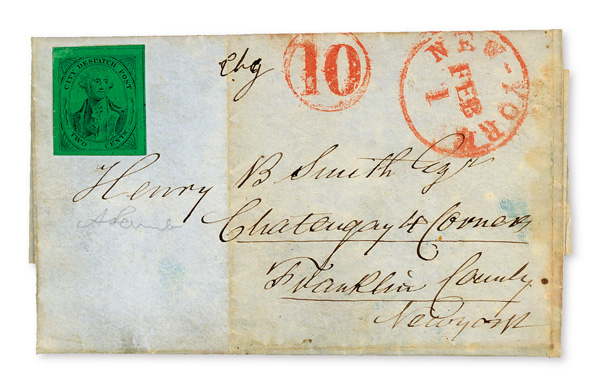 CITY DESPATCH POST
TWO CENTS
chg
10
NEW-YORK
FEB
1
Henry B Smith Esqr
Chateugay 4 Corners
Franklin County
Newyork